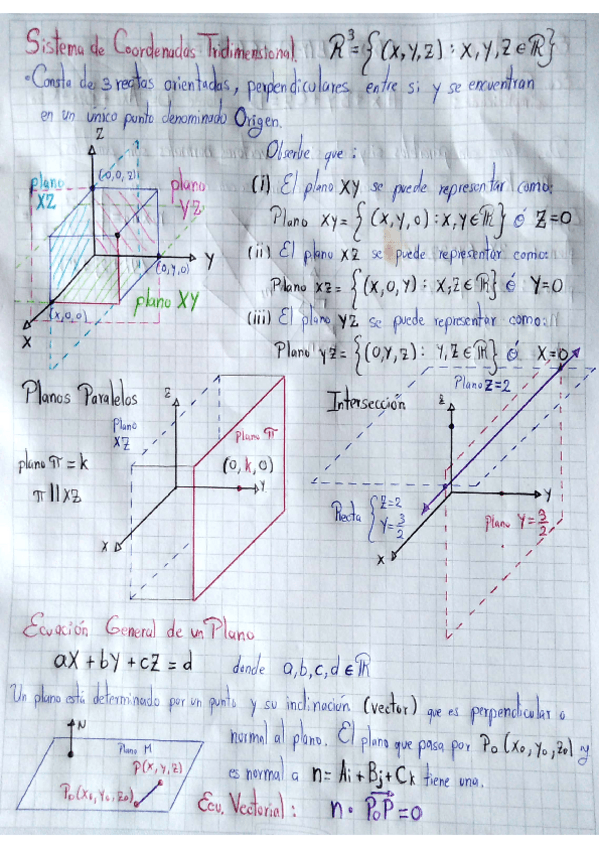 Sistema de Coordenadas Tridimensional. R³={(X,Y,Z):X,Y,Z∈R}
•Consta de 3 rectas orientadas, perpendiculares entre si y se encuentran
en un único punto denominado Origen.
Z
(0,0,z)
plano XZ
plano YZ
Y
(0,Y,0)
plano XY
(x,0,0)
X
Observe que:
(i) El plano XY se puede representar como:
Plano XY={(X,Y,0):X,Y∈R} ó Z=0
(ii) El plano XZ se puede representar como:
Plano XZ={(X,0,Y): X,Z∈R} ó Y=0
(iii) El plano YZ se puede representar como:
Plano YZ={(0,Y,Z): Y,Z∈R} ó X=0
Planos Paralelos
plano π=k
π||XZ
Z
Plano XZ
Plano π
(0,k,0)
Y
X
Intersección
Plano Z=2
Z
Recta { Z=2
Y=3/2
Y
Plano Y=3/2
X
Ecuación General de un Plano
aX+bY+cZ=d donde a,b,c,d∈R
Un plano está determinado por un punto y su inclinación (vector) que es perpendicular o
normal al plano. El plano que pasa por P₀(X₀,Y₀,Z₀) y
es normal a n=Ai+Bj+Ck tiene una.
Ecu. Vectorial: n·P₀P=0
N
Plano M
P(X,Y,Z)
P₀(X₀,Y₀,Z₀)